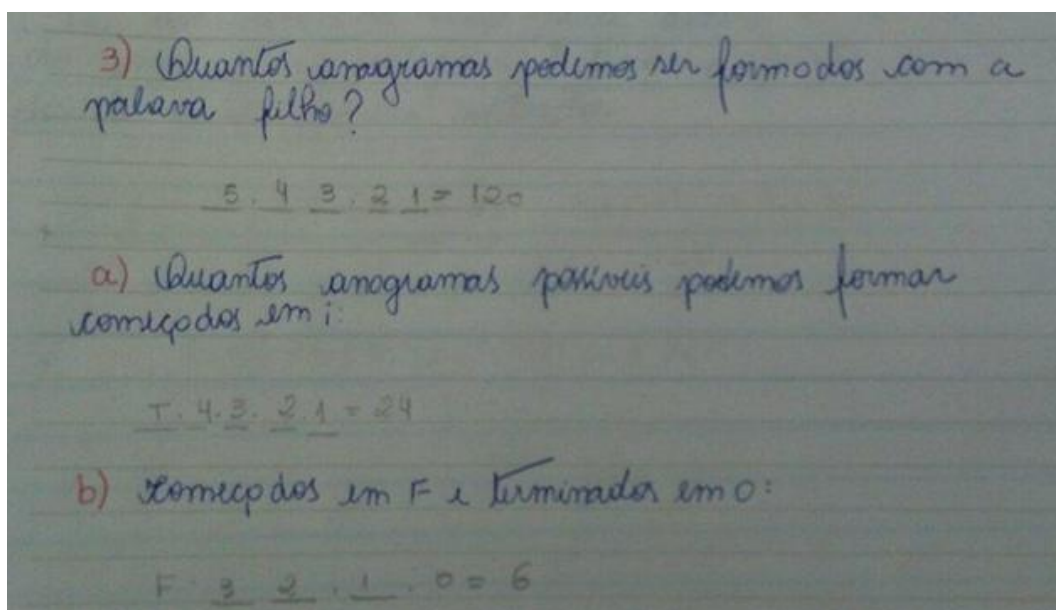 3) Quantos anagramas podemos ser formados com a
palava filho?
5 . 4 3 . 2 1 = 120
a) Quantos anogramas possiveis podemos formar
começados em i:
I . 4 . 3 . 2 . 1 = 24
b) começados em F e terminados em O:
F 3 2 . 1 . O = 6